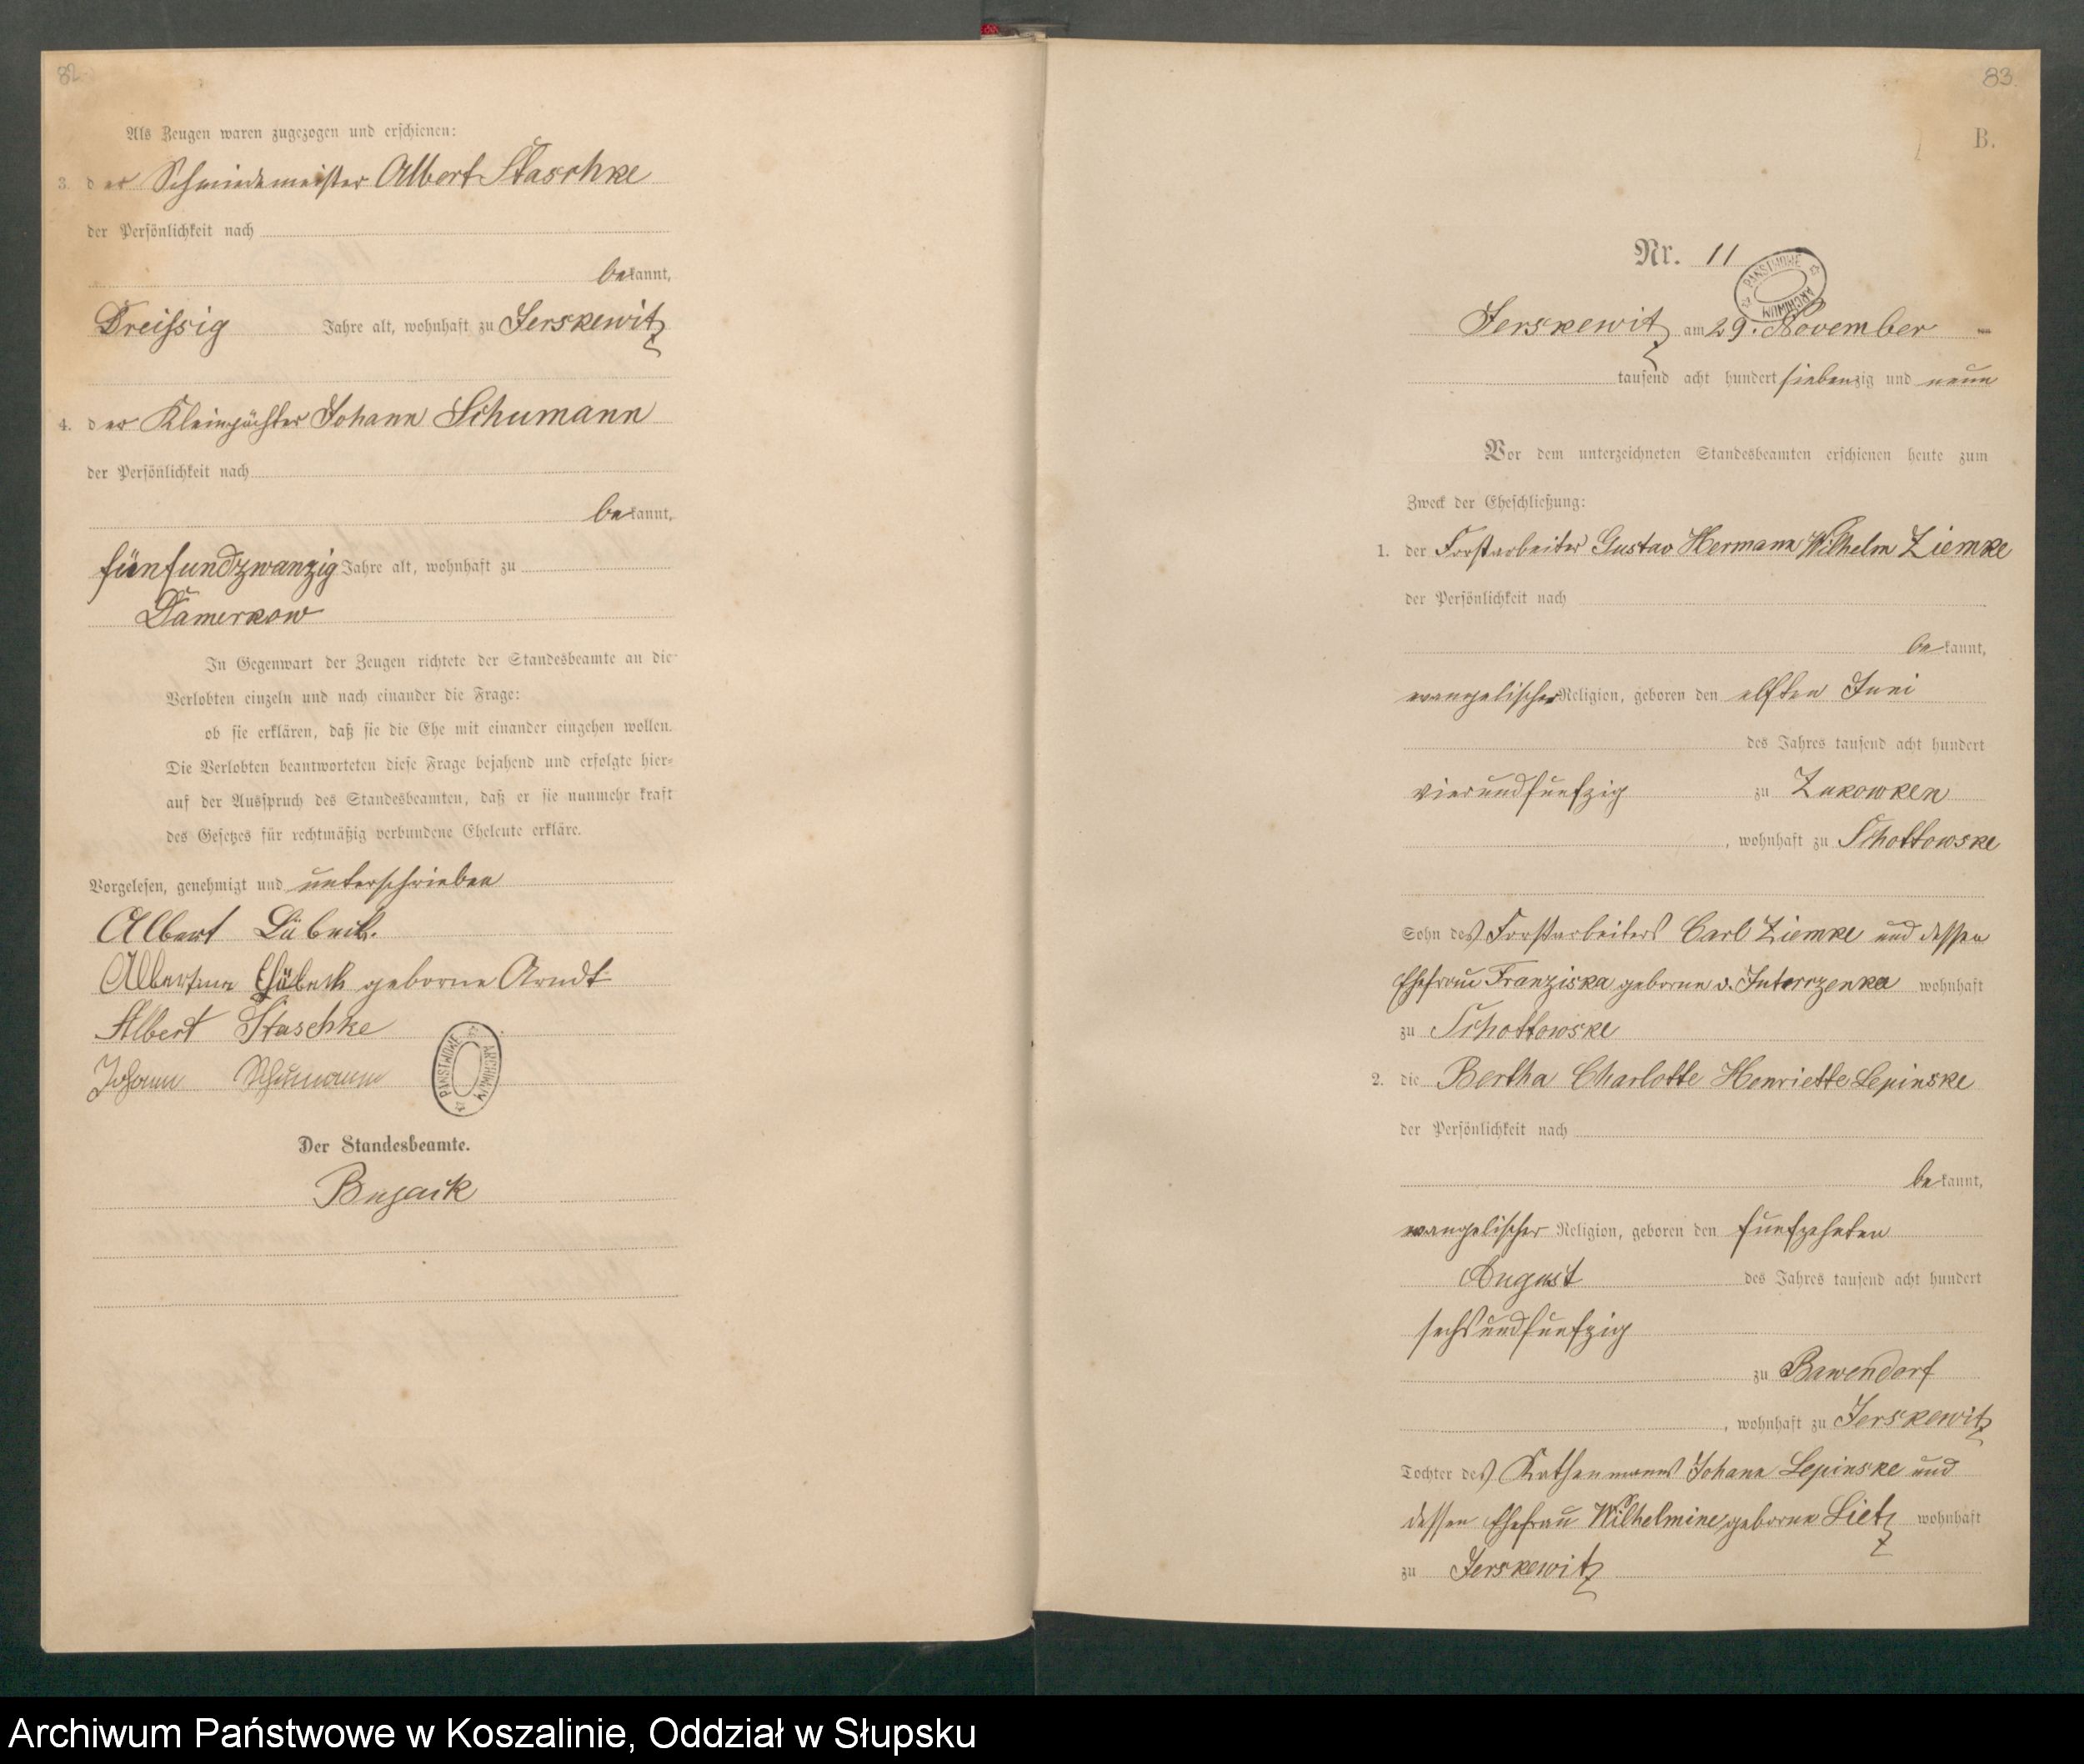 82.
Als Zeugen waren zugezogen und erschienen:
3. der Schmiedemeister Albert Staschke
der Persönlichkeit nach
bekannt,
Dreißig Jahre alt, wohnhaft zu Jerskewitz
4. der Kleinpächter Johann Schumann
der Persönlichkeit nach
bekannt,
fünfundzwanzig Jahre alt, wohnhaft zu
Damerkow
In Gegenwart der Zeugen richtete der Standesbeamte an die
Verlobten einzeln und nach einander die Frage:
ob sie erklären, daß sie die Ehe mit einander eingehen wollen.
Die Verlobten beantworteten diese Frage bejahend und erfolgte hier-
auf der Ausspruch des Standesbeamten, daß er sie nunmehr kraft
des Gesetzes für rechtmäßig verbundene Eheleute erkläre.
Vorgelesen, genehmigt und unterschrieben
Albert Lübeck.
Albertine Lübeck geborne Arndt
Albert Staschke
Johann Schumann
PAŃSTWOWE ARCHIWUM
Der Standesbeamte.
Bujack
83.
B.
Nr. 11
PAŃSTWOWE ARCHIWUM
Jerskewitz am 29. November
tausend acht hundert siebenzig und neun
Vor dem unterzeichneten Standesbeamten erschienen heute zum
Zweck der Eheschließung:
1. der Forstarbeiter Gustav Hermann Wilhelm Ziemke
der Persönlichkeit nach
bekannt,
evangelischer Religion, geboren den elften Juni
des Jahres tausend acht hundert
vierundfunfzig zu Zukowken
, wohnhaft zu Schottowske
Sohn des Forstarbeiters Carl Ziemke und dessen
Ehefrau Franziska geborne v. wohnhaft
zu Schottowske
2. die Bertha Charlotte Henriette Lepinske
der Persönlichkeit nach
bekannt,
evangelischer Religion, geboren den funfzehnten
August des Jahres tausend acht hundert
sechsundfunfzig
zu Bawendorf
, wohnhaft zu Jerskewitz
Tochter des Kathenmanns Johann Lepinske und
dessen Ehefrau Wilhelmine geborne Lietz wohnhaft
zu Jerskewitz
Archiwum Państwowe w Koszalinie, Oddział w Słupsku